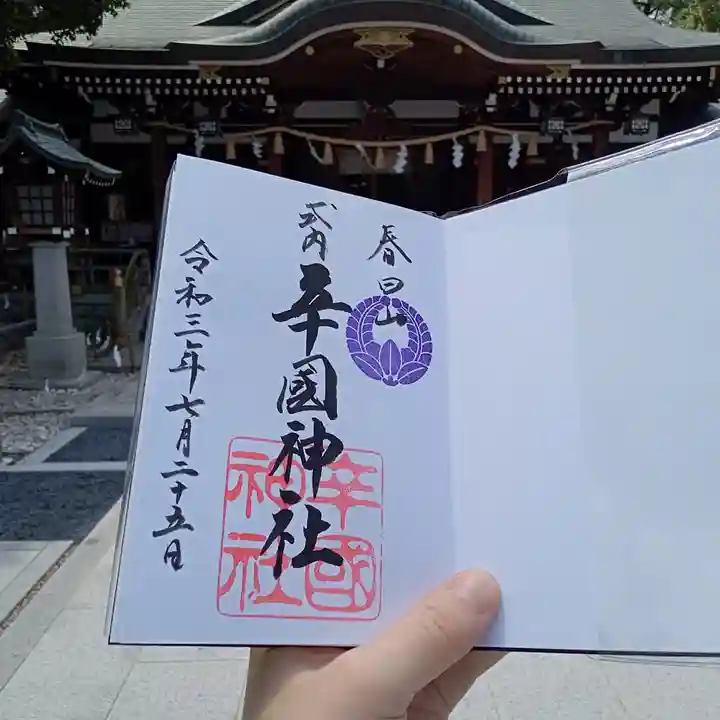 春日山
式内
辛國神社
辛國
神社
令和三年七月二十五日